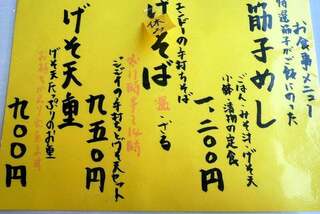 お食事メニュー
特選筋子がご飯にのった
筋子めし
ごはん・みそ汁・げそ天
小鉢・漬物の定食
一、二〇〇円
休
げそば
の手打ちそば
ざる
九五〇円
の手打ちとげそ天セット
げそ天重
げそ天たっぷりのお重
九〇〇円